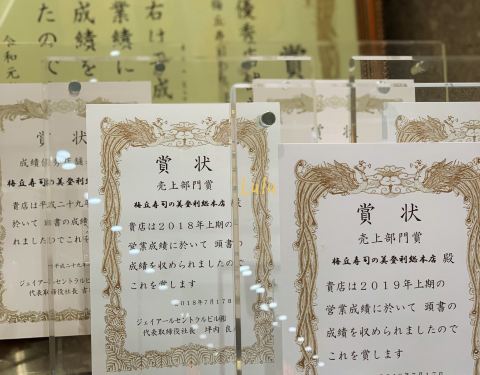 優秀店
賞
梅丘寿司
右は平成
業績に
成績を
たので
令和元
賞 状
売上部門賞
梅丘寿司の美登利総本店 殿
貴店は2019年上期の
営業成績に於いて 頭書の
成績を収められましたので
これを賞します
賞 状
売上部門賞
梅丘寿司の美登利総本店
貴店は2018年上期の
営業成績に於いて 頭書
成績を収められましたので
これを賞します
2018年7月17
ジェイアールセントラルビル㈱
代表取締役社長 坪内 良
賞 状
成績
梅丘寿司の美登利総
貴店は平成二十九
於いて 頭書の成績
れましたのでこれを
平成二十九
ジェイアールセントラルビ
代表取締役社長
賞
Lulu